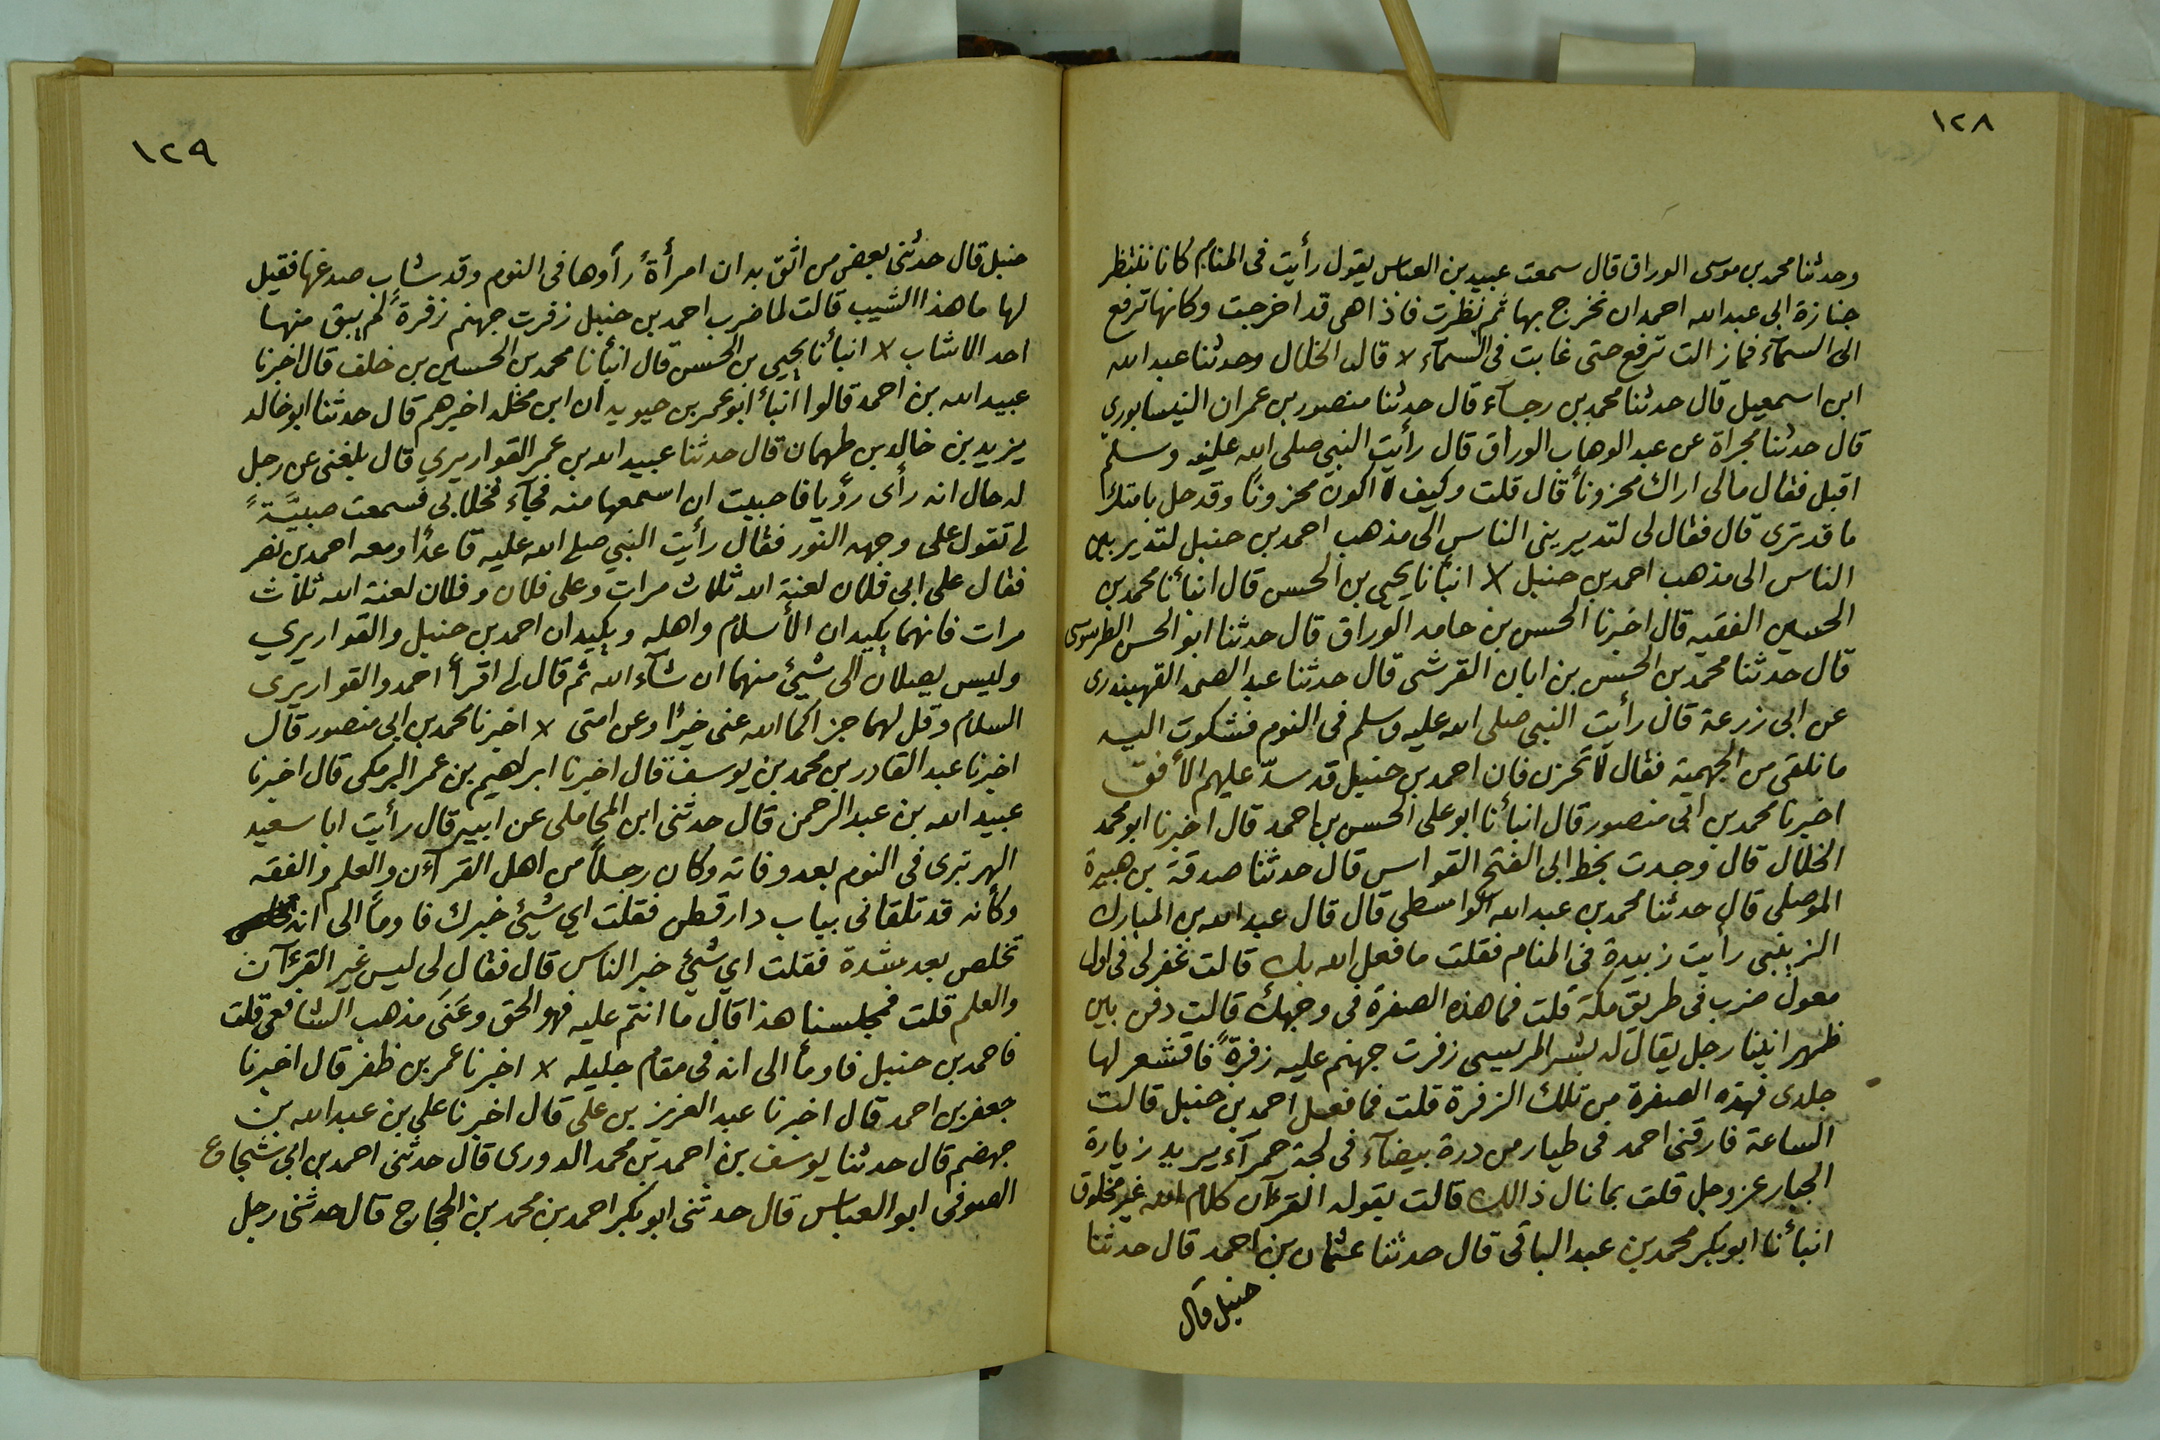 ١٢٨
وحدثنا محمد بن موسى الوراق قال سمعت عبيد بن العباس يقول رأيت فى المنام كانا ننتظر
جنازة ابى عبد الله احمد ان نخرج بها ثم نظرت فاذا هى قد اخرجت وكانها ترفع
الى السمآء فما زالت ترفع حتى غابت فى السمآء لا قال الخلال وحدثنا عبد الله
ابن اسمعيل قال حدثنا محمد بن رجآء قال حدثنا منصور بن عمران النيسابورى
قال حدثنا مجراة عن عبد الوهاب الوراق قال رأيت النبى صلى الله عليه وسلم
اقبل فقال مالى اراك محزوناً قال قلت وكيف لا اكون محزوناً وقد حل بامتك
ما قد ترى قال فقال لى لتديرينى الناس الى مذهب احمد بن حنبل لتديربين
الناس الى مذهب احمد بن حنبل لا انبأنا يحيى بن الحسن قال انبأنا محمد بن
الحسين الفقيه قال اخبرنا الحسن بن حامد الوراق قال حدثنا ابو الحسن الطرسوسى
قال حدثنا محمد بن الحسن بن ابان القرشى قال حدثنا عبد الصمد القهيندرى
عن ابى زرعة قال رأيت النبى صلى الله عليه وسلم فى النوم فشكوت اليه
ما نلقى من الجهمية فقال لا تحزن فان احمد بن حنبل قد سدّ عليهم الأفق
اخبرنا محمد بن ابى منصور قال انبأنا ابو على الحسن بن احمد قال اخبرنا ابو محمد
الخلال قال وجدت بخط ابى الفتح القواس قال حدثنا صدقة بن هبيرة
الموصلى قال حدثنا محمد بن عبد الله الواسطى قال قال عبد الله بن المبارك
الزينبى رأيت زبيدة فى المنام فقلت ما فعل الله بك قالت غفر لى فى اول
معول ضرب فى طريق مكة قلت فما هذه الصفرة فى وجهك قالت دفن بين
ظهرانينا رجل يقال له بشر المريسى زفرت جهنم عليه زفرةً فاقشعر لها
جلدى فهذه الصفرة من تلك الزفرة قلت فما فعل احمد بن حنبل قالت
الساعة فارقنى احمد فى طيار من درة بيضآء فى لجة حمرآء يريد زيارة
الجبار عز وجل قلت بما نال ذالك قالت بقوله القرءآن كلام الله غير مخلوق
انبأنا ابو بكر محمد بن عبد الباقى قال حدثنا عثمان بن احمد قال حدثنا
حنبل قال
١٢٩
حنبل قال حدثنى بعض من اثق به ان امرأةً رأوها فى النوم وقد شاب صدغها فقيل
لها ما هذا الشيب قالت لما ضرب احمد بن حنبل زفرت جهنم زفرةً لم يبق منها
احد الا شاب لا انبأنا يحيى بن الحسن قال انبأنا محمد بن الحسين بن خلف قال اخبرنا
عبيد الله بن احمد قالوا انبأ ابو عمر بن حيويه ان ابن مخلد اخبرهم قال حدثنا ابو خالد
يزيد بن خالد بن طهمان قال حدثنا عبيد الله بن عمر القواريري قال بلغنى عن رجل
له حال انه رأى رؤيا فاحببت ان اسمعها منه فجآء فخلا بى فسمعت صبيَّةً
لى تقول على وجهه النور فقال رأيت النبى صلى الله عليه قاعدًا ومعه احمد بن نصر
فقال على ابى فلان لعنة الله ثلاث مرات وعلى فلان وفلان لعنة الله ثلاث
مرات فانهما يكيدان الأسلام واهله ويكيدان احمد بن حنبل والقواريري
وليس يصلان الى شيئ منهما ان شآء الله ثم قال لى اقرأ احمد والقواريرى
السلام وقل لهما جزاكما الله عنى خيرًا وعن امتى لا اخبرنا محمد بن ابى منصور قال
اخبرنا عبد القادر بن محمد بن يوسف قال اخبرنا ابراهيم بن عمر البرمكى قال اخبرنا
عبيد الله بن عبد الرحمن قال حدثنى ابن المحاملى عن ابيه قال رأيت ابا سعيد
الهرتبرى فى النوم بعد وفاته وكان رجلاً من اهل القرآءن والعلم والفقه
وكأنه قد تلقانى بباب دار قطن فقلت اي شيئ خبرك فاومأ الى انه
تخلص بعد شدة فقلت اي شيئ خبر الناس قال فقال لى ليس غير القرءآن
والعلم قلت فمجلسنا هذا قال ما انتم عليه فهو الحق وعَنَى مذهب الشافعى قلت
فاحمد بن حنبل فاومأ الى انه فى مقام جليله لا اخبرنا عمر بن ظفر قال اخبرنا
جعفر بن احمد قال اخبرنا عبد العزيز بن على قال اخبرنا علي بن عبد الله بن
جهضم قال حدثنا يوسف بن احمد بن محمد الدورى قال حدثنى احمد بن ابى شجاع
الصوفى ابو العباس قال حدثنى ابو بكر احمد بن محمد بن الحجاج قال حدثنى رجل